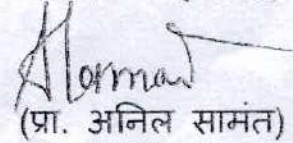 (प्रा. अनिल सामंत)